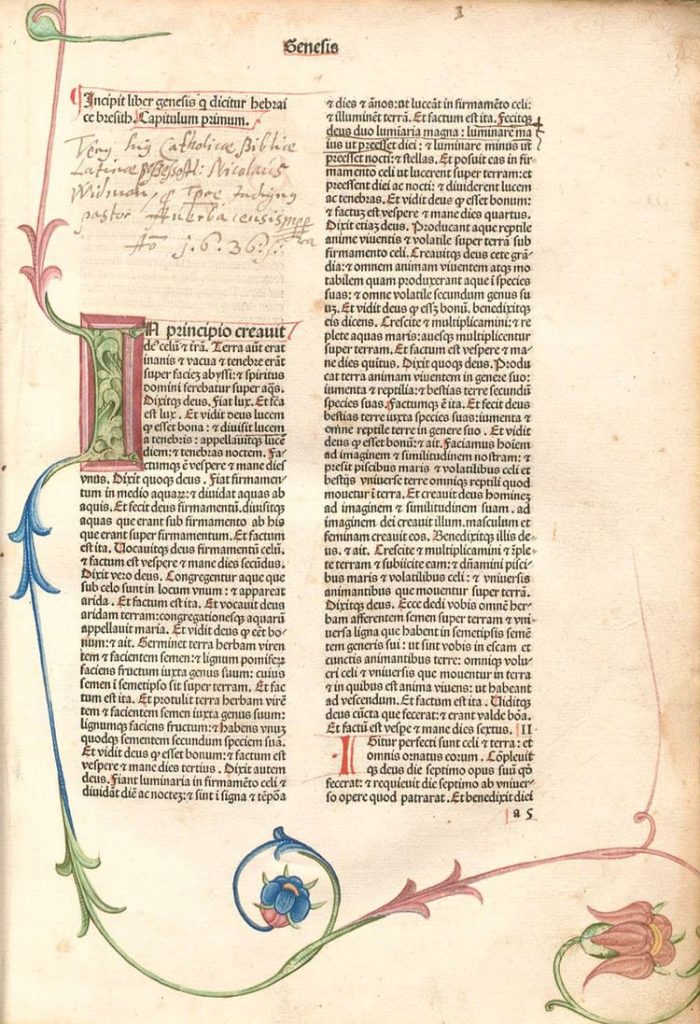 1
Genesis
Incipit liber genesis q̄ dicitur hebrai
ce bresith. Capitulum primum.
Catholicæ Bibliæ
Latinæ Nicolaus
pastor
Aō 1.6.36.
IN principio creauit
de⁹ celū ⁊ t̄rā. Terra aūt erat
inanis ⁊ vacua ⁊ tenebre erāt
super faciē abyssi: ⁊ spiritus
domini ferebatur super aq̄s.
Dixitq̄ deus. Fiat lux. Et fc̄a
est lux. Et vidit deus lucem
ꝙ esset bona: ⁊ diuisit lucem
a tenebris: appellauitq̄ lucē
diem: ⁊ tenebras noctem. Fa-
ctumq̄ ē vespere ⁊ mane dies
vnus. Dixit quoq̄ deus. Fiat firmamen-
tum in medio aquaꝝ: ⁊ diuidat aquas ab
aquis. Et fecit deus firmamentū. diuisitq̄
aquas que erant sub firmamento ab his
que erant super firmamentum. Et factum
est ita. Vocauitq̄ deus firmamentū celū.
⁊ factum est vespere ⁊ mane dies secūdus.
Dixit vero deus. Congregentur aque que
sub celo sunt in locum vnum: ⁊ appareat
arida. Et factum est ita. Et vocauit deus
aridam terram: congregationesq̄ aquarū
appellauit maria. Et vidit deus ꝙ eēt bo-
num: ⁊ ait. Germinet terra herbam viren
tem ⁊ facientem semen: ⁊ lignum pomiferꝝ
faciens fructum iuxta genus suum: cuius
semen ī semetipso sit super terram. Et fac
tum est ita. Et protulit terra herbam virē
tem ⁊ facientem semen iuxta genus suum:
lignumq̄ faciens fructum: ⁊ habens vnūq̄
quodq̄ sementem secundum speciem suā.
Et vidit deus ꝙ esset bonum: ⁊ factum est
vespere ⁊ mane dies tertius. Dixit autem
deus. Fiant luminaria in firmamēto celi ⁊
diuidāt diē ac noctez: ⁊ sint ī signa ⁊ tēpōa
⁊ dies ⁊ ānos: ut luceāt in firmamēto celi:
⁊ illuminēt terrā. Et factum est ita. Fecitq̄
deus duo lumīaria magna: luminare ma
ius ut preesset diei: ⁊ luminare minus ut
preesset nocti: ⁊ stellas. Et posuit eas in fir-
mamento celi ut lucerent super terram: et
preessent diei ac nocti: ⁊ diuiderent lucem
ac tenebras. Et vidit deus ꝙ esset bonum:
⁊ factuz est vespere ⁊ mane dies quartus.
Dixit etiaz deus. Producant aque reptile
anime viuentis ⁊ volatile super terrā sub
firmamento celi. Creauitq̄ deus cete grā-
dia: ⁊ omnem animam viuentem atq̄ mo
tabilem quam produxerant aque ī species
suas: ⁊ omne volatile secundum genus su
uz. Et vidit deus ꝙ essz bonū. benedixitq̄
eis dicens. Crescite ⁊ multiplicamini: ⁊ re
plete aquas maris: auesq̄ multiplicentur
super terram. Et factum est vespere ⁊ ma-
ne dies quītus. Dixit quoq̄ deus. Produ
cat terra animam viuentem in genere suo:
iumenta ⁊ reptilia: ⁊ bestias terre secundū
species suas. Factumq̄ ē ita. Et fecit deus
bestias terre iuxta species suas: iumenta ⁊
omne reptile terre in genere suo. Et vidit
deus ꝙ esset bonū: ⁊ ait. Faciamus hoīem
ad imaginem ⁊ similitudinem nostram: ⁊
presit piscibus maris ⁊ volatilibus celi et
bestijs vniuerse terre omniq̄ reptili quod
mouetur ī terra. Et creauit deus hominez
ad imaginem ⁊ similitudinem suam. ad
imaginem dei creauit illum. masculum et
feminam creauit eos. Benedixitq̄ illis de-
us. ⁊ ait. Crescite ⁊ multiplicamini ⁊ īple-
te terram ⁊ subiicite eam: ⁊ dn̄amini pisci-
bus maris ⁊ volatilibus celi: ⁊ vniuersis
animantibus que mouentur super terram.
Dixitq̄ deus. Ecce dedi vobis omnē her-
bam afferentem semen super terram ⁊ vni-
uersa ligna que habent in semetipsis semē
tem generis sui: ut sint vobis in escam et
cunctis animantibus terre: omniq̄ volu-
cri celi ⁊ vniuersis que mouentur in terra
⁊ in quibus est anima viuens: ut habeant
ad vescendum. Et factum est ita. Viditq̄
deus cūcta que fecerat: ⁊ erant valde bōa.
Et factū est vespe ⁊ mane dies sextus. II
IGitur perfecti sunt celi ⁊ terra: et
omnis ornatus eorum. Cōpleuit
q̄ deus die septimo opus suū qō
fecerat: ⁊ requieuit die septimo ab vniuer-
so opere quod patrarat. Et benedixit diei
a 5